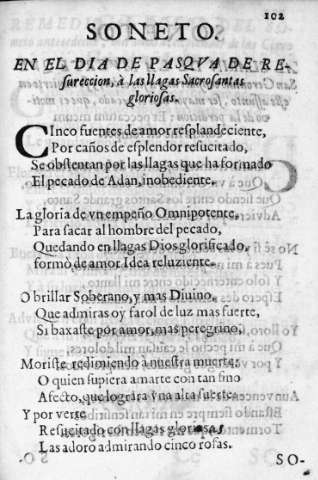 102
SONETO.
EN EL DIA DE PASQVA DE RE-
sureccion, à las llagas Sacrosantas
gloriosas.
CInco fuentes de amor resplandeciente,
Por caños de esplendor resucitado,
Se obstentan por las llagas que ha formado
El pecado de Adan, inobediente.
La gloria de vn empeño Omnipotente,
Para sacar al hombre del pecado,
Quedando en llagas Dios glorificado,
formò de amor Idea reluziente.
O brillar Soberano, y mas Diuino,
Que admiras oy farol de luz mas fuerte,
Si baxaste por amor, mas peregrino,
Moriste redimiendo à nuestra muerte:
O quien supiera amarte con tan fino
Afecto, que lograra vna alta suerte.
Y por verse
Resucitado con llagas gloriosas
Las adoro admirando cinco rosas.
SO-